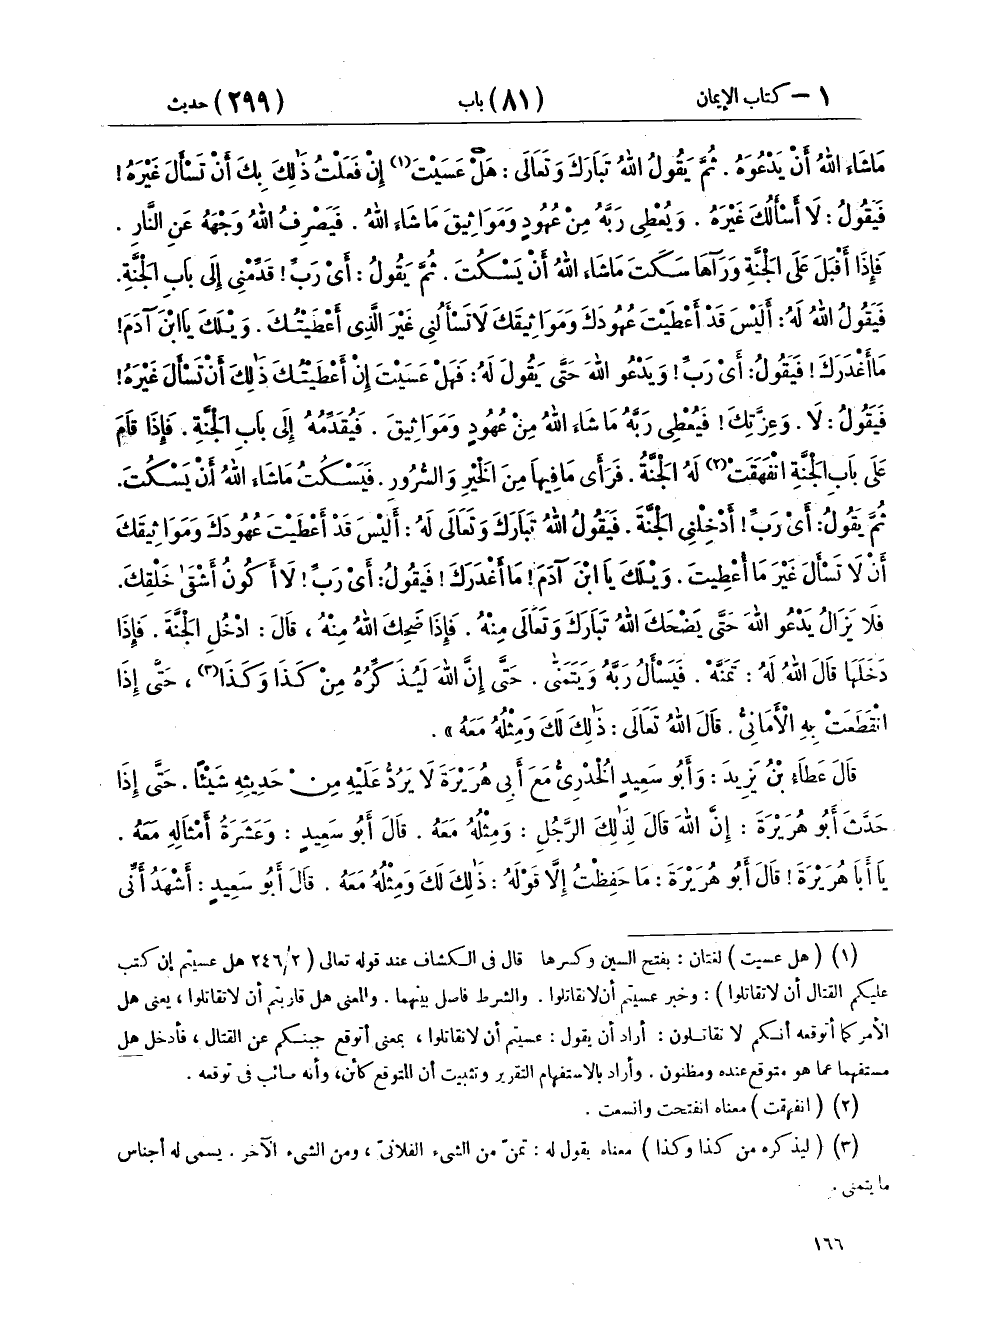 ١ – كتاب الإيمان (٨١) باب (٢٩٩) حديث
مَاشَاءَ اللهُ أَنْ يَدْعُوَهُ . ثُمَّ يَقُولُ اللهُ تَبَارَكَ وَتَعَالَى : هَلْ عَسَيْتَ(١) إِنْ فَعَلْتُ ذَٰلِكَ بِكَ أَنْ تَسْأَلَ غَيْرَهُ !
فَيَقُولُ : لَا أَسْأَلُكَ غَيْرَهُ . وَيُعْطِى رَبَّهُ مِنْ عُهُودٍ وَمَوَاثِيقَ مَا شَاءَ اللهُ . فَيَصْرِفُ اللهُ وَجْهَهُ عَنِ النَّارِ .
فَإِذَا أَقْبَلَ عَلَى الْجَنَّةِ وَرَآهَا سَكَتَ مَاشَاءَ اللهُ أَنْ يَسْكُتَ . ثُمَّ يَقُولُ : أَىْ رَبِّ ! قَدِّمْنِى إِلَى بَابِ الْجَنَّةِ .
فَيَقُولُ اللهُ لَهُ : أَلَيْسَ قَدْ أَعْطَيْتَ عُهُودَكَ وَمَوَاثِيقَكَ لَا تَسْأَلُنِى غَيْرَ الَّذِى أَعْطَيْتُكَ . وَيْلَكَ يَا ابْنَ آدَمَ !
مَا أَغْدَرَكَ ! فَيَقُولُ : أَىْ رَبِّ ! وَيَدْعُو اللهَ حَتَّى يَقُولَ لَهُ : فَهَلْ عَسَيْتَ إِنْ أَعْطَيْتُكَ ذَٰلِكَ أَنْ تَسْأَلَ غَيْرَهُ !
فَيَقُولُ : لَا . وَعِزَّتِكَ ! فَيُعْطِى رَبَّهُ مَا شَاءَ اللهُ مِنْ عُهُودٍ وَمَوَاثِيقَ . فَيُقَدِّمُهُ إِلَى بَابِ الْجَنَّةِ . فَإِذَا قَامَ
عَلَى بَابِ الْجَنَّةِ انْفَهَقَتْ(٢) لَهُ الْجَنَّةُ . فَرَأَى مَا فِيهَا مِنَ الْخَيْرِ وَالسُّرُورِ . فَيَسْكُتُ مَاشَاءَ اللهُ أَنْ يَسْكُتَ .
ثُمَّ يَقُولُ : أَىْ رَبِّ ! أَدْخِلْنِى الْجَنَّةَ . فَيَقُولُ اللهُ تَبَارَكَ وَتَعَالَى لَهُ : أَلَيْسَ قَدْ أَعْطَيْتَ عُهُودَكَ وَمَوَاثِيقَكَ
أَنْ لَا تَسْأَلَ غَيْرَ مَا أُعْطِيتَ . وَيْلَكَ يَا ابْنَ آدَمَ ! مَا أَغْدَرَكَ ! فَيَقُولُ : أَىْ رَبِّ ! لَا أَكُونُ أَشْقَى خَلْقِكَ .
فَلَا يَزَالُ يَدْعُو اللهَ حَتَّى يَضْحَكَ اللهُ تَبَارَكَ وَتَعَالَى مِنْهُ . فَإِذَا ضَحِكَ اللهُ مِنْهُ ، قَالَ : ادْخُلِ الْجَنَّةَ . فَإِذَا
دَخَلَهَا قَالَ اللهُ لَهُ : تَمَنَّهْ . فَيَسْأَلُ رَبَّهُ وَيَتَمَنَّى . حَتَّى إِنَّ اللهَ لَيُذَكِّرُهُ مِنْ كَذَا وَكَذَا(٣) ، حَتَّى إِذَا
انْقَطَعَتْ بِهِ الْأَمَانِىُّ . قَالَ اللهُ تَعَالَى : ذَٰلِكَ لَكَ وَمِثْلُهُ مَعَهُ » .
قَالَ عَطَاءُ بْنُ يَزِيدَ : وَأَبُو سَعِيدٍ الْخُدْرِىُّ مَعَ أَبِى هُرَيْرَةَ لَا يَرُدُّ عَلَيْهِ مِنْ حَدِيثِهِ شَيْئًا . حَتَّى إِذَا
حَدَّثَ أَبُو هُرَيْرَةَ : إِنَّ اللهَ قَالَ لِذَٰلِكَ الرَّجُلِ : وَمِثْلُهُ مَعَهُ . قَالَ أَبُو سَعِيدٍ : وَعَشَرَةُ أَمْثَالِهِ مَعَهُ .
يَا أَبَا هُرَيْرَةَ ! قَالَ أَبُو هُرَيْرَةَ : مَا حَفِظْتُ إِلَّا قَوْلَهُ : ذَٰلِكَ لَكَ وَمِثْلُهُ مَعَهُ . قَالَ أَبُو سَعِيدٍ : أَشْهَدُ أَنِّى
(١) ( هل عسيت ) لغتان : بفتح السين وكسرها قال فى الكشاف عند قوله تعالى ( ٢/ ٢٤٦ هل عسيتم إن كتب
عليكم القتال أن لا تقاتلوا ) : وخبر عسيتم أن لا تقاتلوا . والشرط فاصل بينهما . والمعنى هل قاربتم أن لا تقاتلوا ، يعنى هل
الأمر كما أتوقعه أنكم لا تقاتلون : أراد أن يقول : عسيتم أن لا تقاتلوا ، بمعنى أتوقع جبنكم عن القتال ، فأدخل هل
مستفهما عما هو متوقع عنده ومظنون . وأراد بالاستفهام التقرير وتثبيت أن المتوقع كائن، وأنه صائب فى توقعه .
(٢) ( انفهقت ) معناه انفتحت واتسعت .
(٣) ( ليذكره من كذا وكذا ) معناه يقول له : تمنّ من الشىء الفلانىّ ، ومن الشىء الآخر . يسمى له أجناس
ما يتمنى .
١٦٦